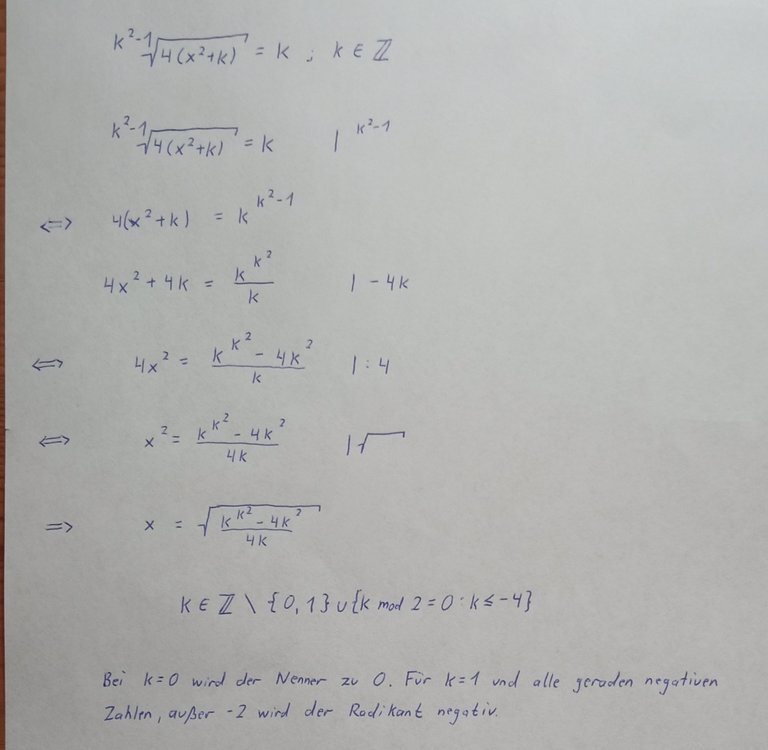 $\sqrt[k^2-1]{4(x^2+k)} = k \; ; \; k \in \mathbb{Z}$
$\sqrt[k^2-1]{4(x^2+k)} = k \quad | \; ^{k^2-1}$
$\Leftrightarrow 4(x^2+k) = k^{k^2-1}$
$4x^2 + 4k = \frac{k^{k^2}}{k} \quad | -4k$
$\Leftrightarrow 4x^2 = \frac{k^{k^2} - 4k^2}{k} \quad | :4$
$\Leftrightarrow x^2 = \frac{k^{k^2} - 4k^2}{4k} \quad | \sqrt{\phantom{x}}$
$\Rightarrow x = \sqrt{\frac{k^{k^2} - 4k^2}{4k}}$
$k \in \mathbb{Z} \setminus \{0,1\} \cup \{k \bmod 2 = 0 : k \leq -4\}$
Bei k=0 wird der Nenner zu 0. Für k=1 und alle geraden negativen
Zahlen, außer -2 wird der Radikant negativ.